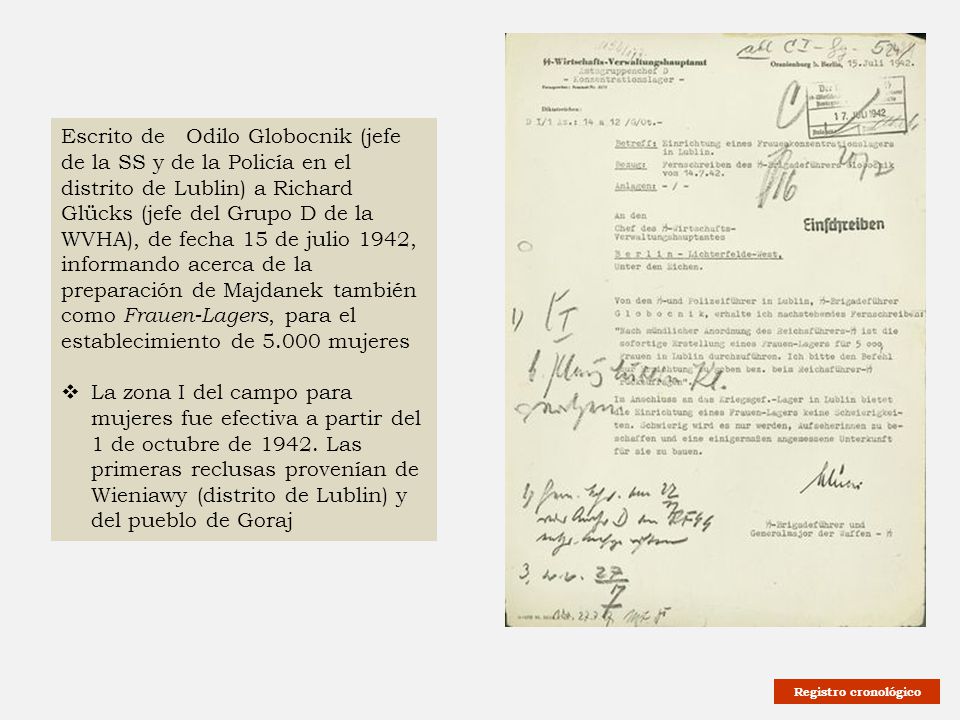 Escrito de Odilo Globocnik (jefe
de la SS y de la Policía en el
distrito de Lublin) a Richard
Glücks (jefe del Grupo D de la
WVHA), de fecha 15 de julio 1942,
informando acerca de la
preparación de Majdanek también
como Frauen-Lagers, para el
establecimiento de 5.000 mujeres
❖ La zona I del campo para
mujeres fue efectiva a partir del
1 de octubre de 1942. Las
primeras reclusas provenían de
Wieniawy (distrito de Lublin) y
del pueblo de Goraj
SS-Wirtschafts-Verwaltungshauptamt
Amtsgruppenchef D
- Konzentrationslager -
Oranienburg b. Berlin, 15.Juli 1942.
17. JULI 1942
Diktatzeichen:
D I/1 Az.: 14 a 12 /G/Ot.-
Betreff: Einrichtung eines Frauenkonzentrationslagers
in Lublin.
Bezug: Fernschreiben des SS-Brigadeführers Globocnik
vom 14.7.42.
Anlagen: - / -
An den
Chef des SS-Wirtschafts-
Verwaltungshauptamtes
Einschreiben
Berlin - Lichterfelde-West,
Unter den Eichen.
Von dem SS-und Polizeiführer in Lublin, SS-Brigadeführer
Globocnik, erhalte ich nachstehendes Fernschreiben:
"Nach mündlicher Anordnung des Reichsführers-SS ist die
sofortige Erstellung eines Frauen-Lagers für 5 000
Frauen in Lublin durchzuführen. Ich bitte den Befehl
zur Errichtung zu geben bez. beim Reichsführer-SS
rückzufragen".
Im Anschluss an das Kriegsgef.-Lager in Lublin bietet
die Einrichtung eines Frauen-Lagers keine Schwierigkei-
ten. Schwierig wird es nur werden, Aufseherinnen zu be-
schaffen und eine einigermaßen angemessene Unterkunft
für sie zu bauen.
SS-Brigadeführer und
Generalmajor der Waffen - SS
Registro cronológico